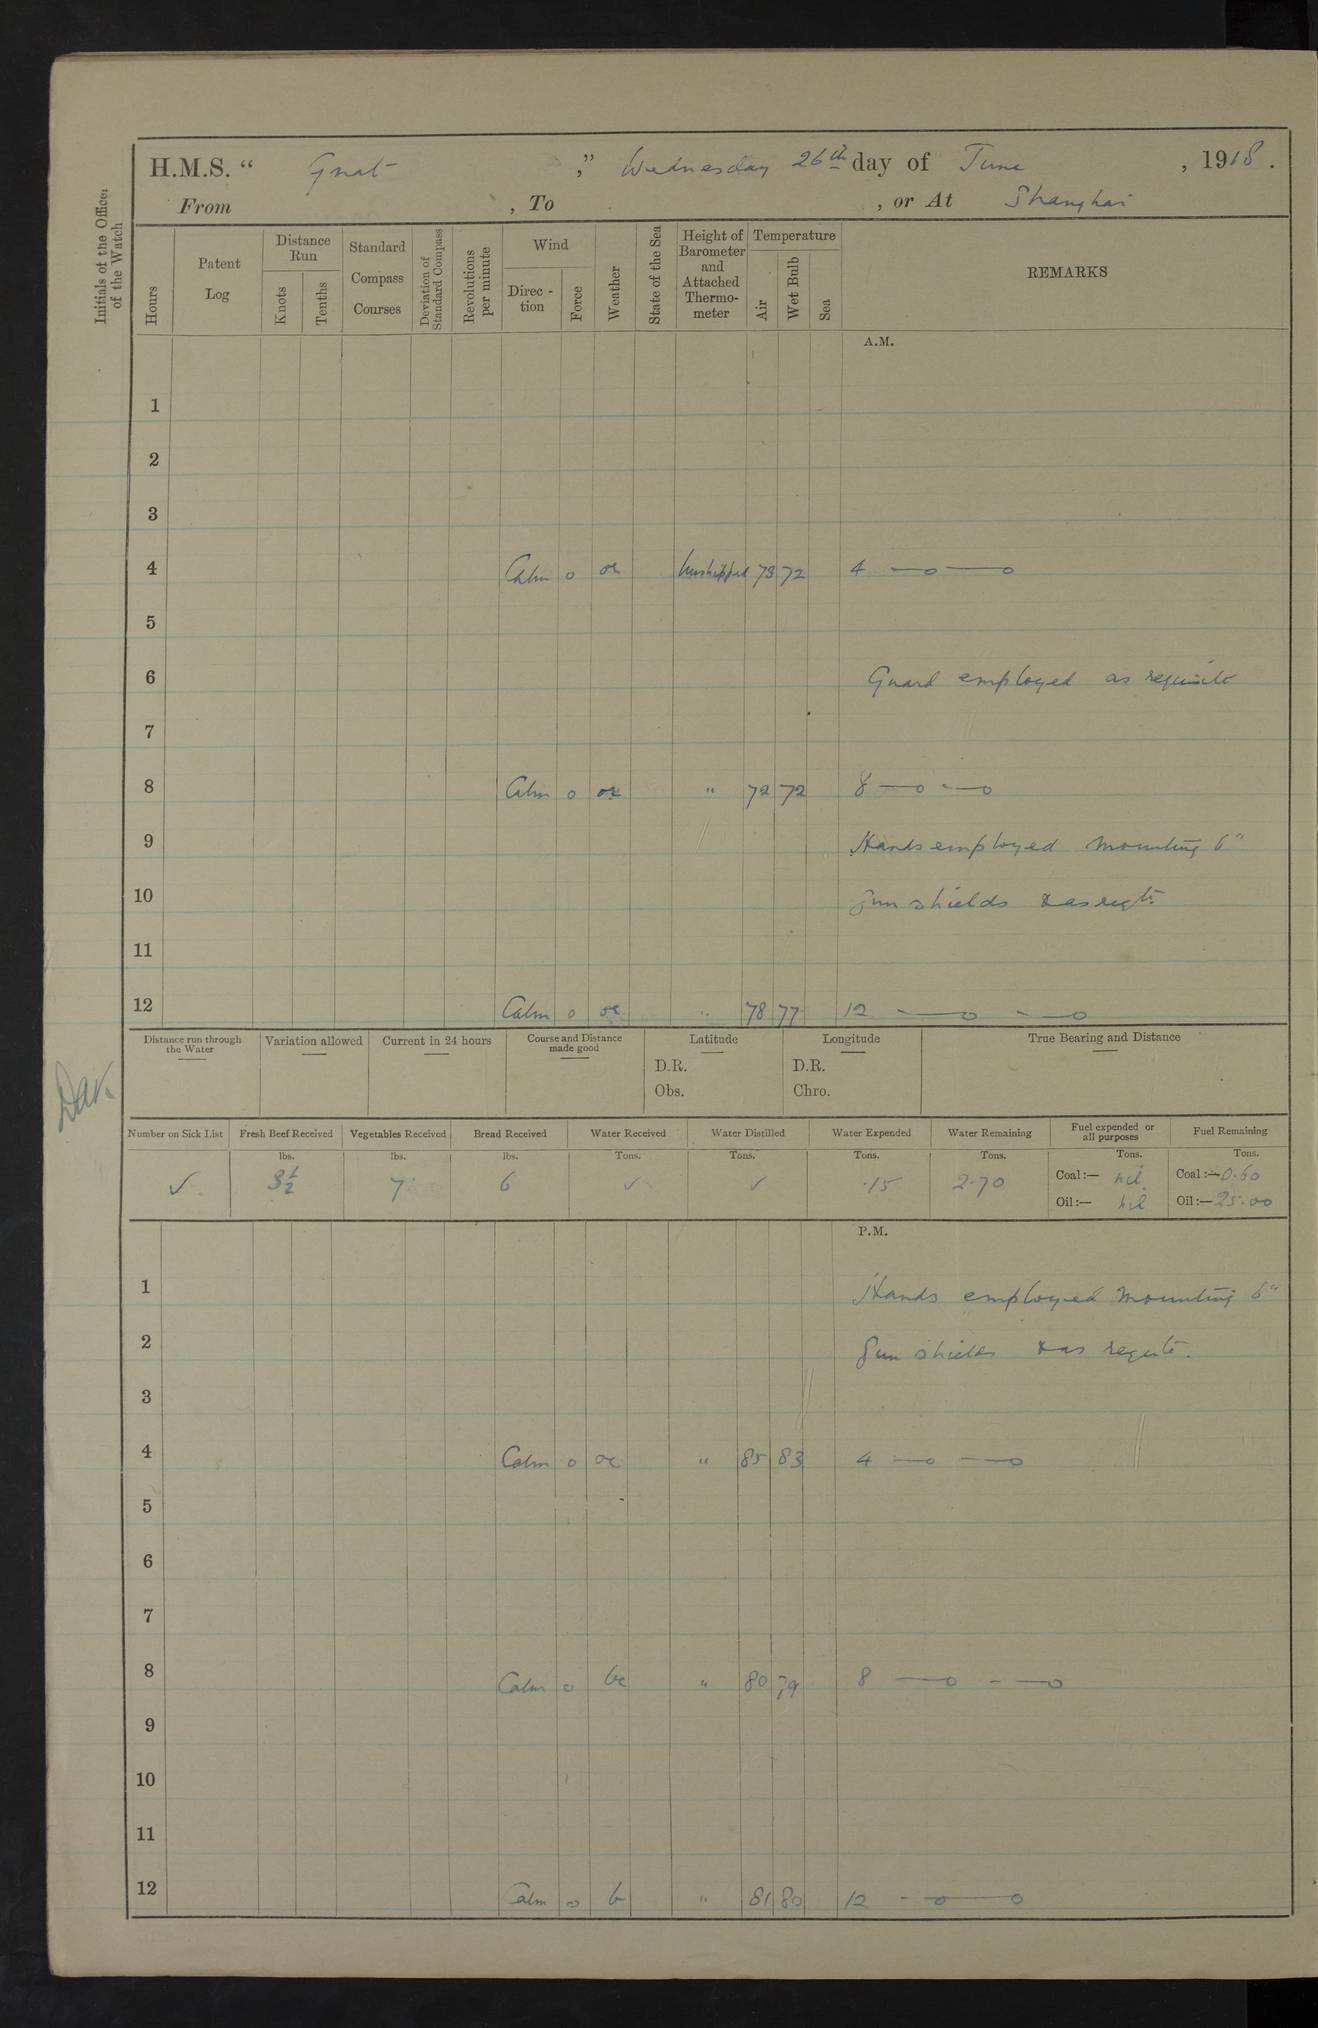 H.M.S. “ Gnat ,” Wednesday 26th day of June , 1918 .
From , To , or At Shanghai
Initials of the Officer of the Watch
Hours
Patent Log
Distance Run
Knots
Tenths
Standard Compass Courses
Deviation of Standard Compass
Revolutions per minute
Wind
Direc - tion
Force
Weather
State of the Sea
Height of Barometer and Attached Thermo- meter
Temperature
Air
Wet Bulb
Sea
REMARKS
A.M.
1
2
3
4 Calm o oc Unshipped 73 72 4 —o —o
5
6 Guard employed as requisite
7
8 Calm o oc " 72 72 8 —o -—o
9 Hands employed mounting 6"
10 gun shields & as reqte.
11
12 Calm o oc " 78 77 12 —o - —o
Distance run through the Water
Variation allowed
Current in 24 hours
Course and Distance made good
Latitude
D.R.
Obs.
Longitude
D.R.
Chro.
True Bearing and Distance
Number on Sick List Fresh Beef Received Vegetables Received Bread Received Water Received Water Distilled Water Expended Water Remaining Fuel expended or all purposes Fuel Remaining
lbs. lbs. lbs. Tons. Tons. Tons. Tons. Tons. Tons.
✓ 3½ 7 6 ✓ ✓ .15 2.70 Coal :— nil Coal :— 0.60
Oil :— nil Oil :— 25.00
P.M.
1 Hands employed mounting 6"
2 Gun shields & as requte.
3
4 Calm o oc " 85 83 4 —o —o
5
6
7
8 Calm o bc " 80 79 8 —o - —o
9
10
11
12 Calm o b " 81 80 12 - o —o